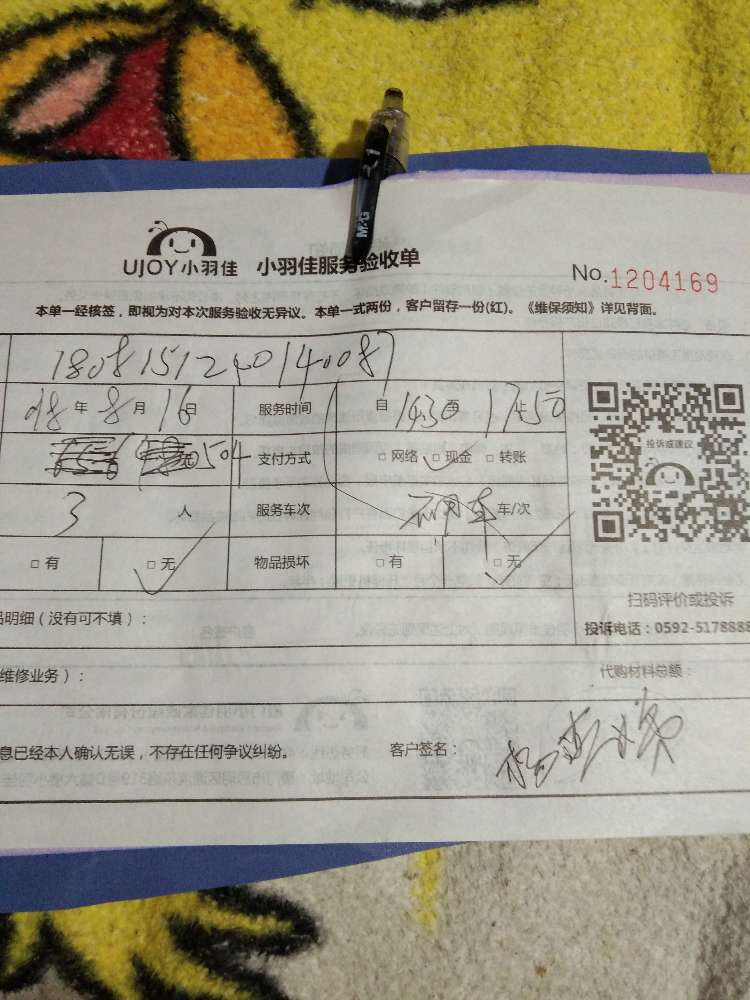 M&G
UJOY小羽佳 小羽佳服务验收单
No.1204169
本单一经核签，即视为对本次服务验收无异议。本单一式两份，客户留存一份(红)。《维保须知》详见背面。
1808151240140087
年 8 月 16 日 服务时间 自 1430 至 1750
504 支付方式 □网络 □现金 □转账
投诉或建议
3 人 服务车次 车/次
□有 □无 物品损坏 □有 □无
扫码评价或投诉
明细（没有可不填）：
投诉电话：0592-5178888
维修业务）： 代购材料总额：
息已经本人确认无误，不存在任何争议纠纷。 客户签名：